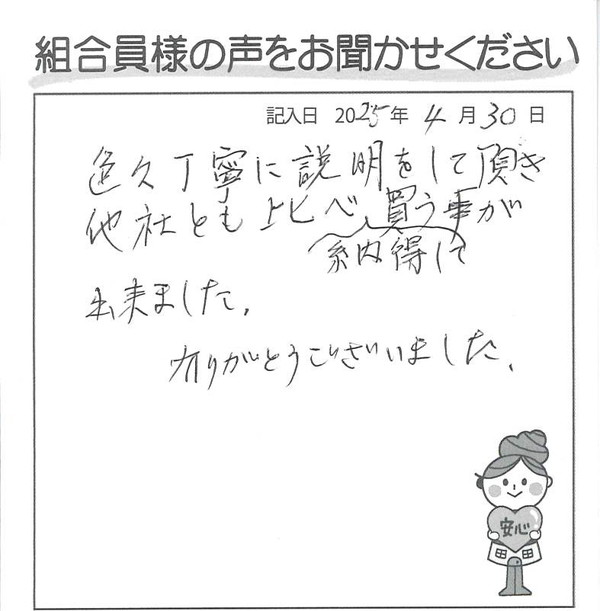 組合員様の声をお聞かせください
記入日 2025年 4月30日
色々丁寧に説明をして頂き
他社とも比べ、買う事が
納得して
出来ました。
有りがとうございました。
安心